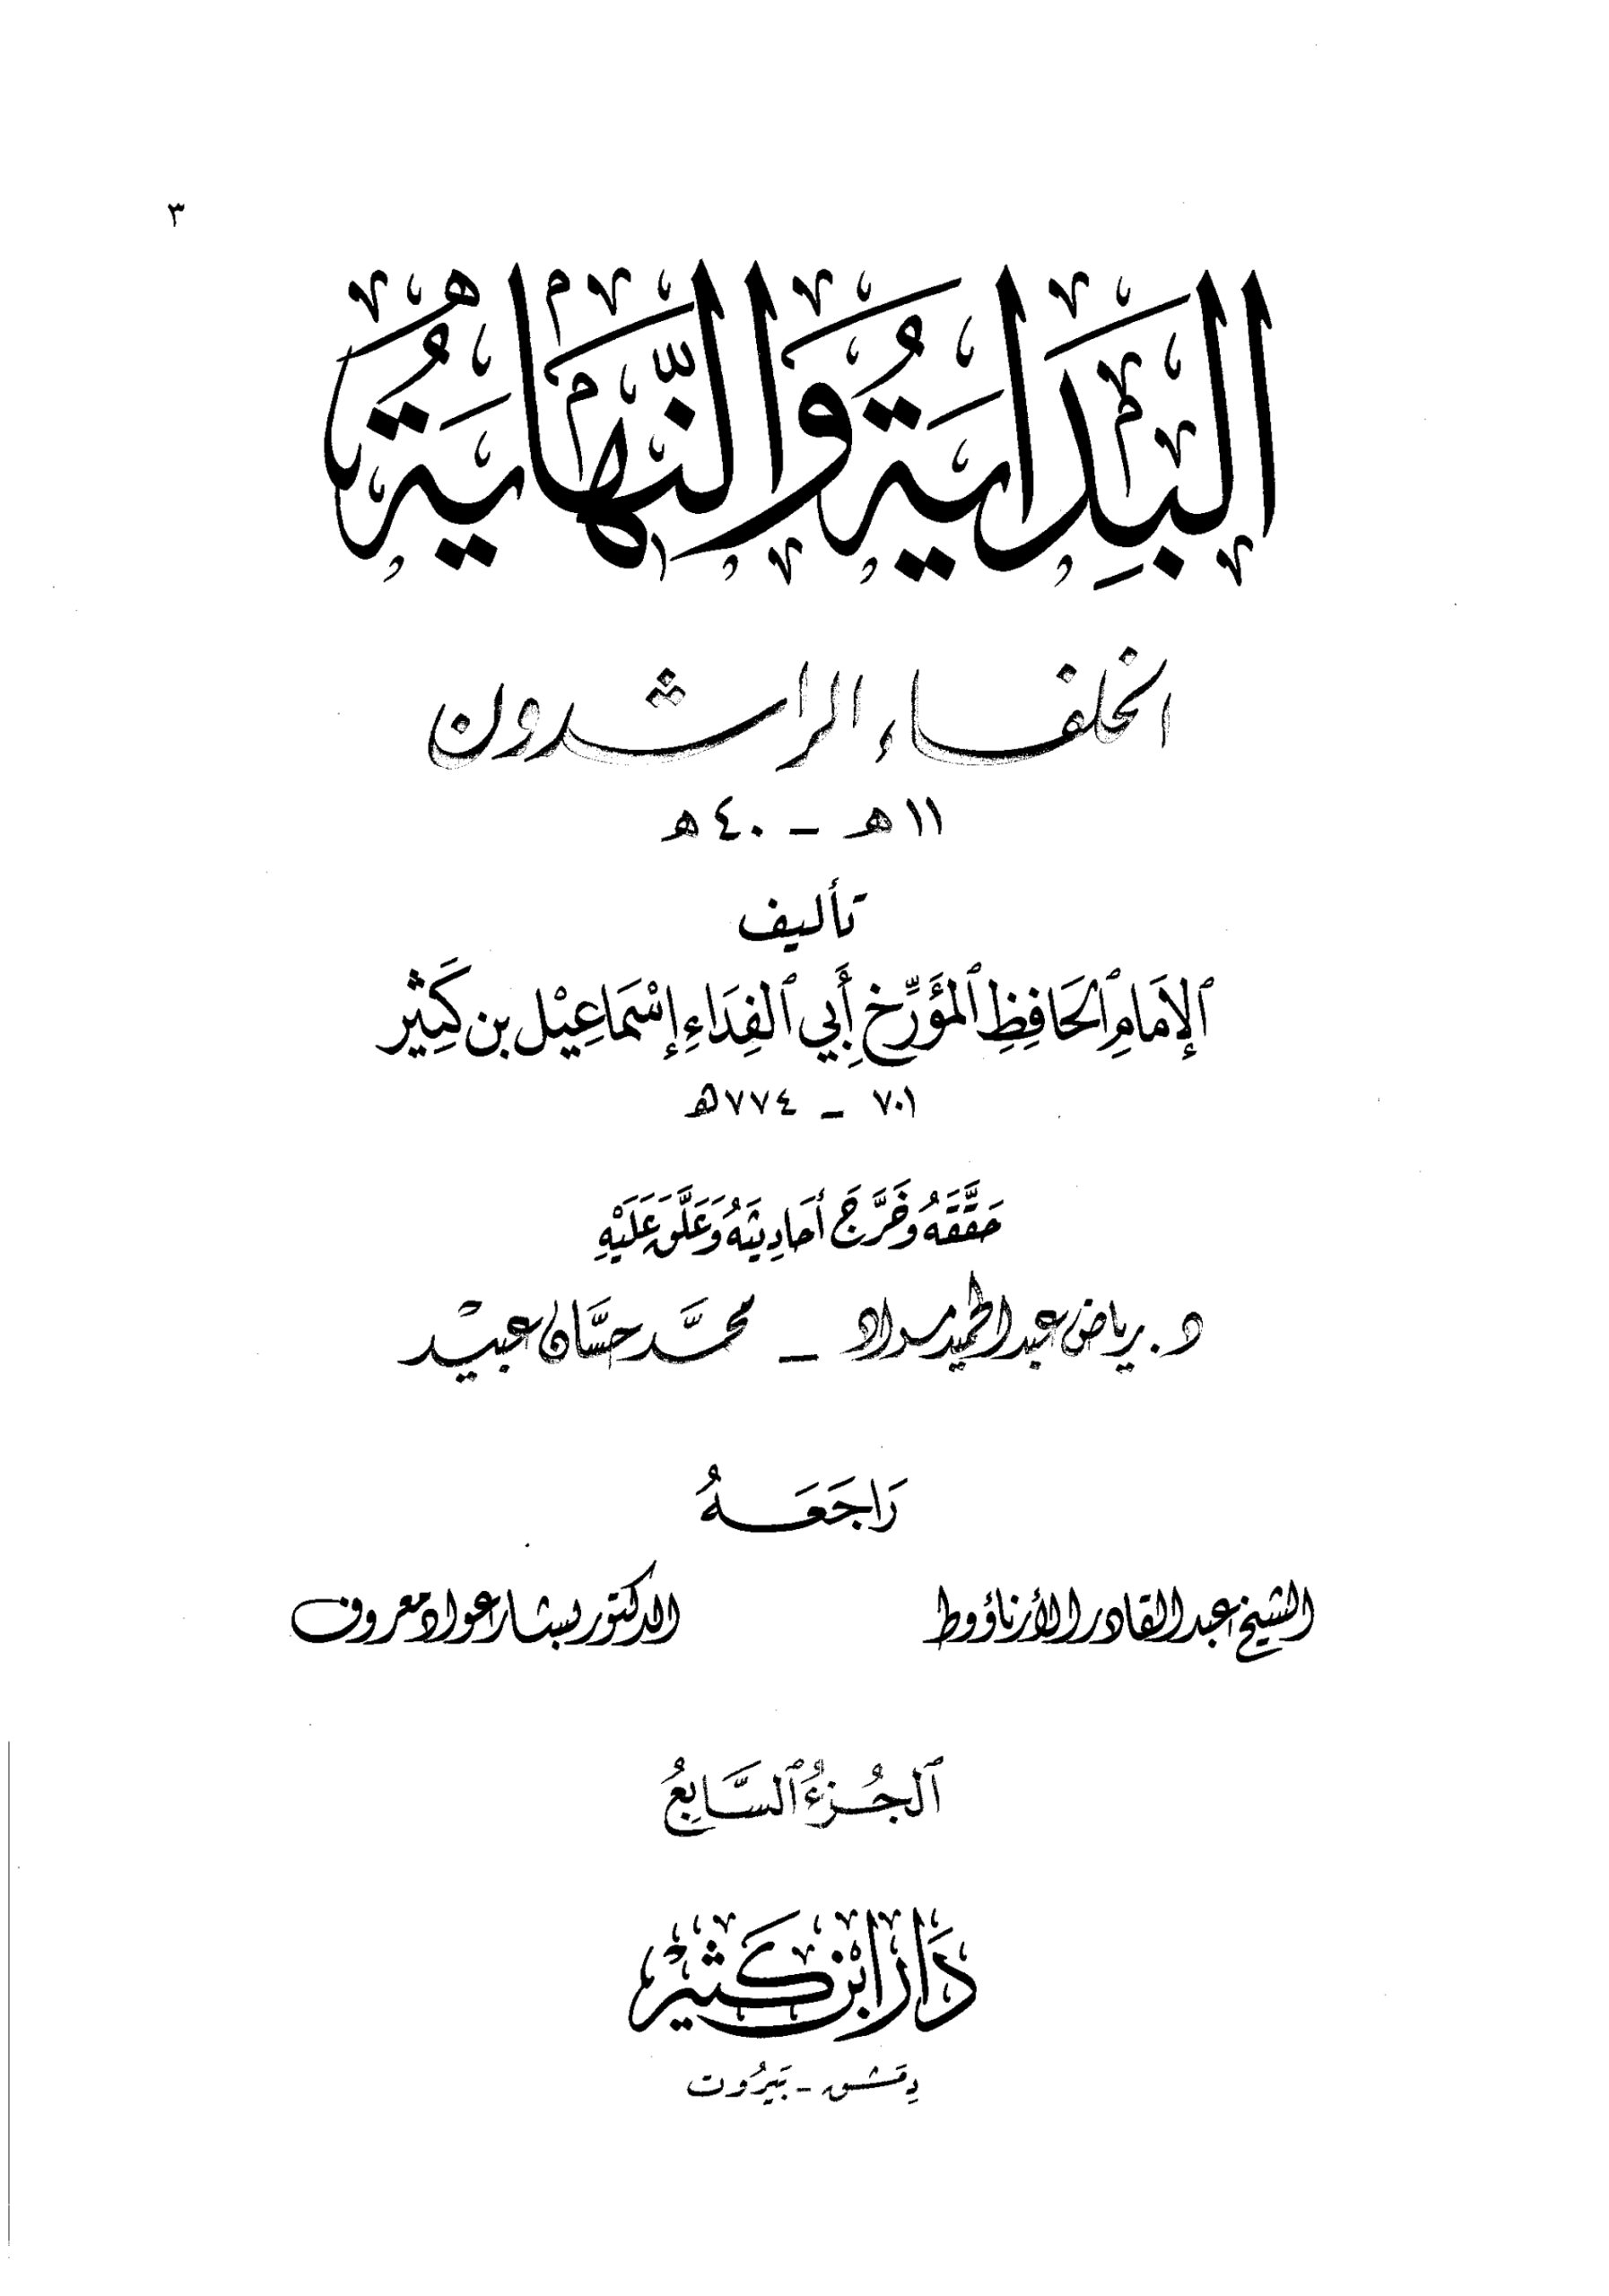 ٣
البِدَايَةُ وَالنِّهَايَةُ
الخلفاء الراشدون
١١هـ - ٤٠هـ
تأليف
ٱلإمَامِ ٱلحَافِظِ ٱلمُؤَرِّخِ أَبِي ٱلفِدَاءِ إِسْمَاعِيْل بن كَثِير
٧٠١ - ٧٧٤هـ
حَقَّقَهُ وَخَرَّجَ أحَادِيثَهُ وَعَلَّقَ عَلَيْهِ
د. رياض عبد الحميد مراد - محمَّد حسَّان عبيْد
رَاجَعَهُ
الشيخ عبد القادر الأرناؤوط الدكتور بشار عواد معروف
ٱلجُزءُ ٱلسَّابِعُ
دَار ابْن كَثِيْر
دِمَشق - بَيرُوت